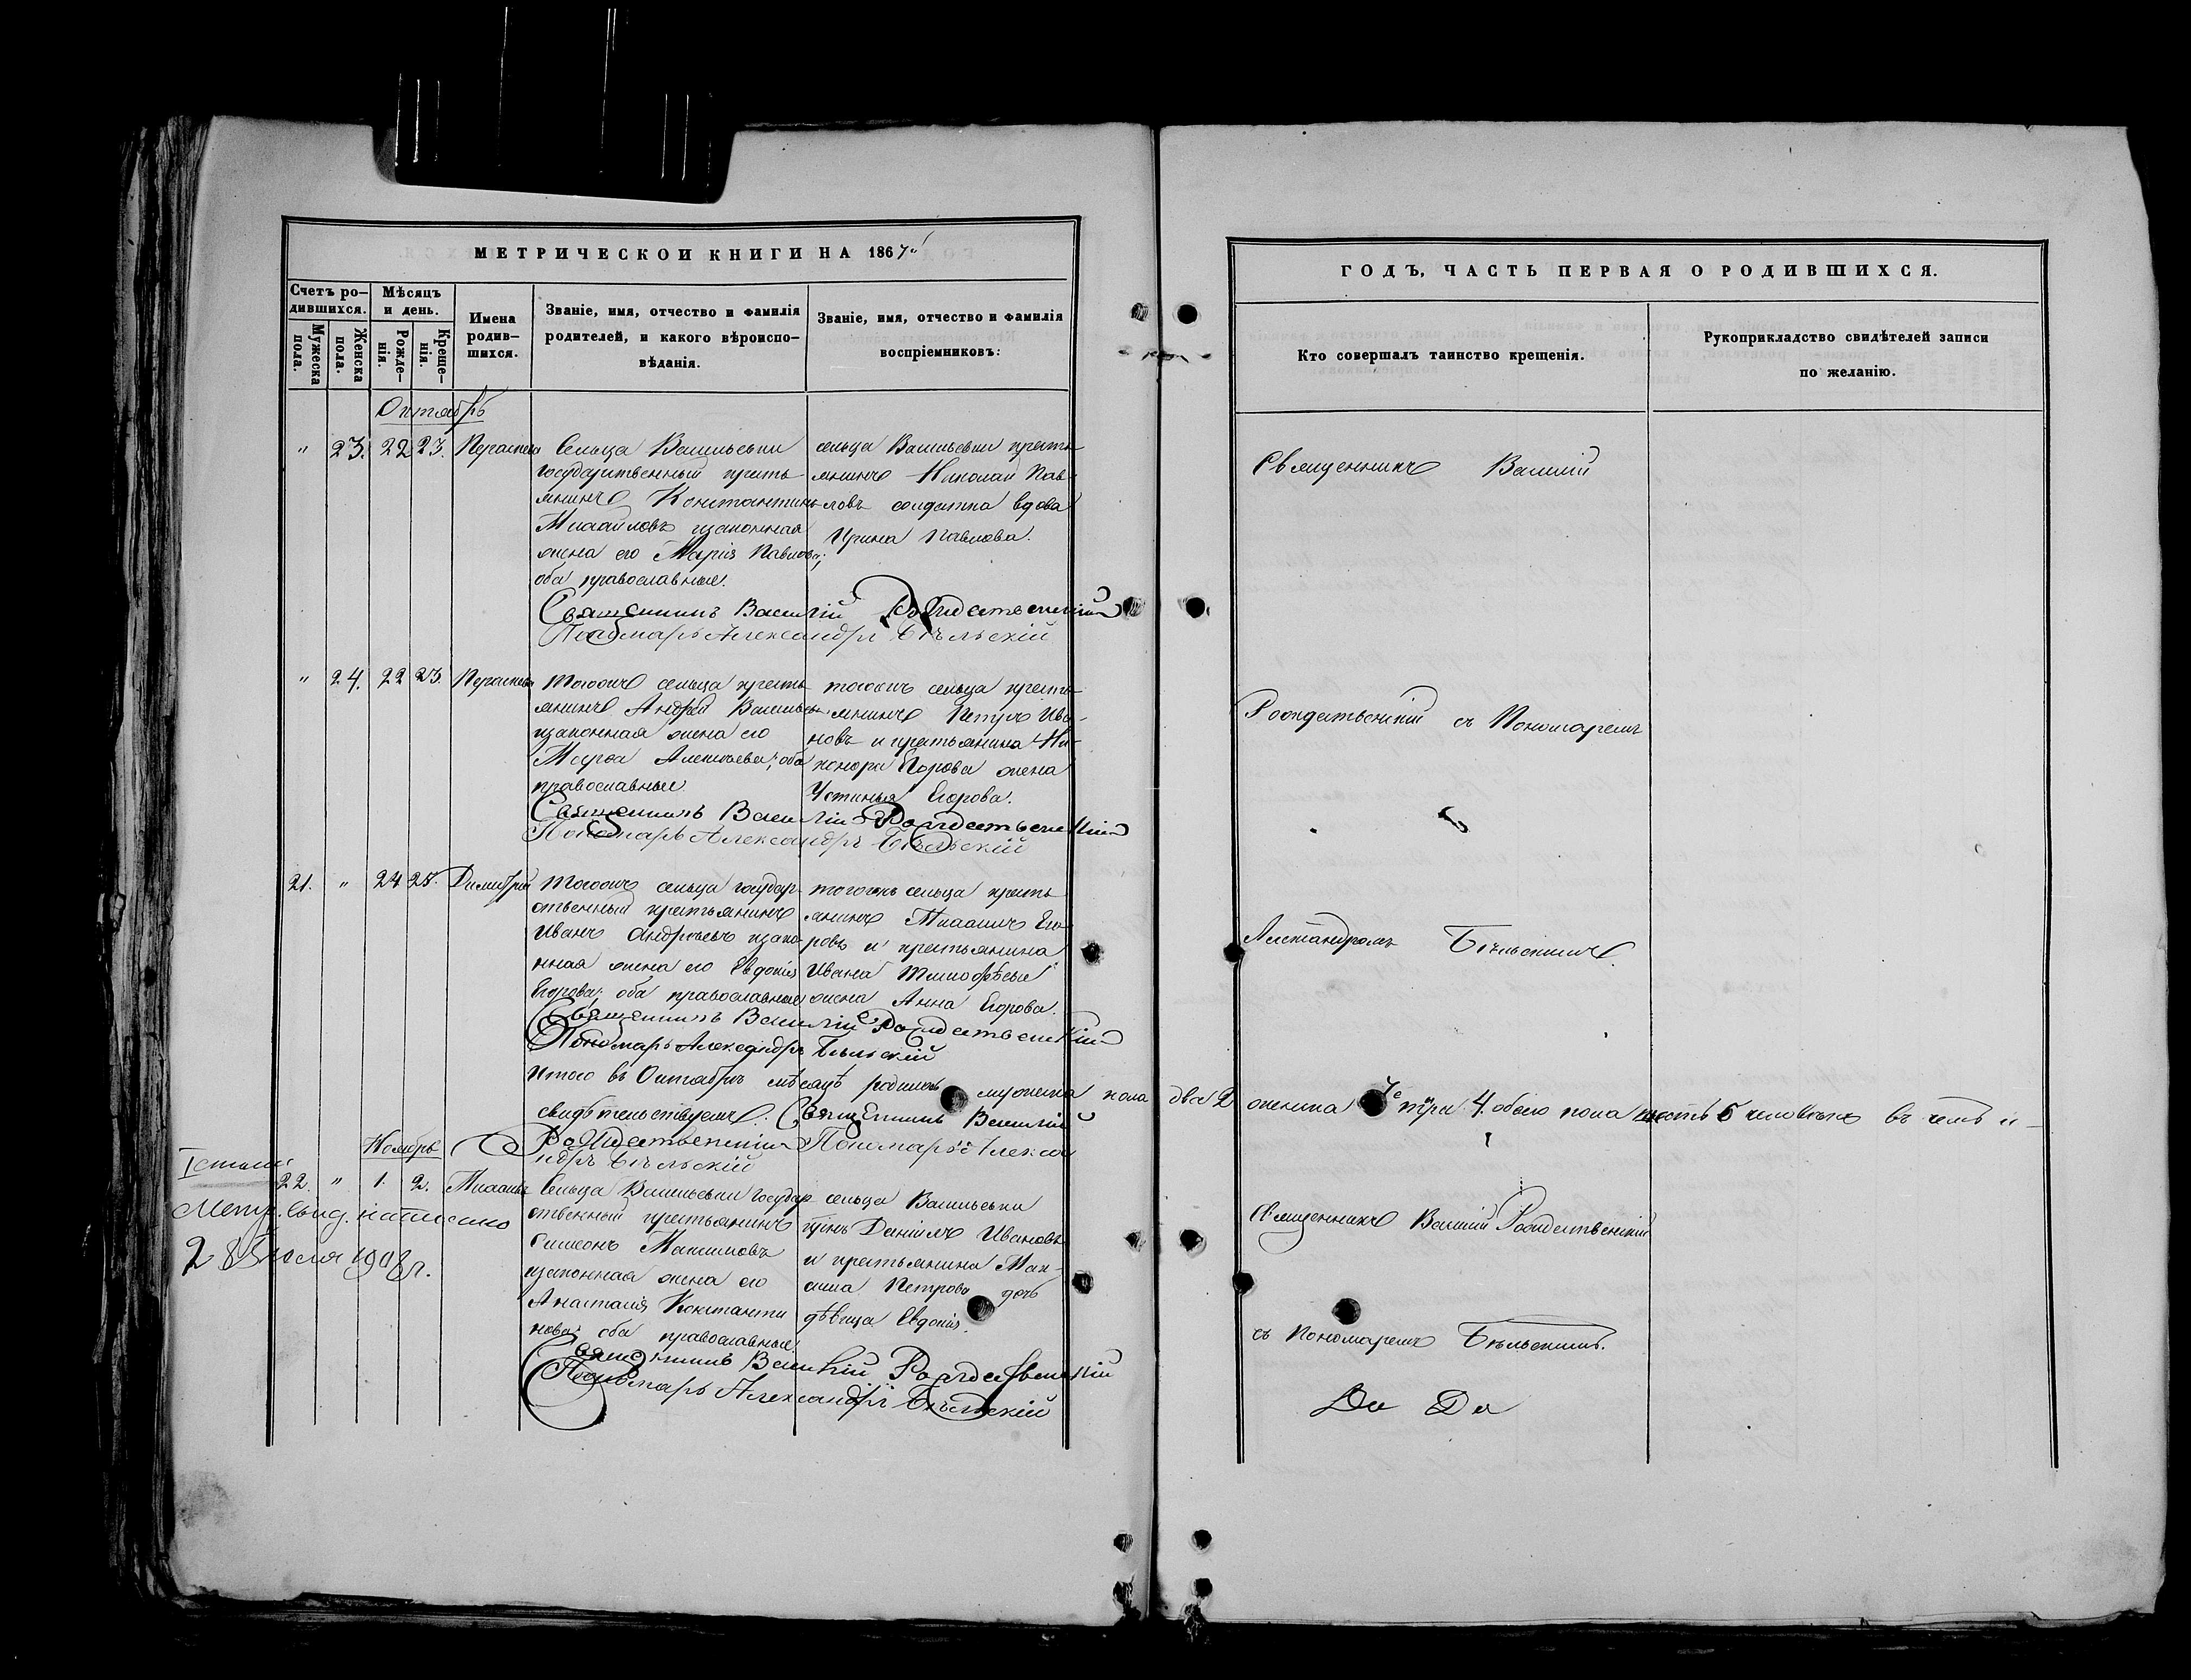 МЕТРИЧЕСКОЙ КНИГИ НА 1867й
Счетъ ро-
дившихся.
Мужеска
пола.
Женска
пола.
Мѣсяцъ
и день.
Рожде-
нія.
Креще-
нія.
Имена
родив-
шихся.
Званіе, имя, отчество и фамилія
родителей, и какого вѣроиспо-
вѣданія.
Званіе, имя, отчество и фамилія
воспріемниковъ:
Октябрь
" 23. 22 23.
Сельца Васильевки
государственный кресть-
янинъ Константинъ
Михайловъ изаконная
жена его Марія Павлова;
оба православные.
сельца Васильевки кресть-
янинъ Николай Пав-
ловъ солдатка вдова
Ирина Павлова.
Священникъ Василій Рождественскій
Пономарь Александръ Бѣльскій
" 24. 22 23.
Тогожъ сельца кресть-
янинъ Андрей Васильевъ
изаконная жена его
Алексѣева; оба
православные
тогожъ сельца кресть-
янинъ Петръ Ива-
новъ и крестьянина Ни-
Егорова жена
Устинья Егорова.
Священникъ Василій Рождественскій
Пономарь Александръ Бѣльскій
21. " 24 25. Димитрій
Тогожъ сельца государ-
ственный крестьянинъ
Иванъ Андреевъ изако-
нная жена его Евдокія
Егорова; оба православные
тогожъ сельца кресть-
янинъ Михаилъ Его-
ровъ и крестьянина
Ивана Тимофѣева
жена Анна Егорова.
Священникъ Василій Рождественскій
Пономарь Александръ Бѣльскій
Итого въ Октябрѣ мѣсяцѣ родилось мужеска пола два 2 женска 4. обоего пола шесть 6 человѣкъ въ чемъ и
свидѣтельствуемъ. Священникъ Василій
Рождественскій Пономарь Алекса
ндръ Бѣльскій
Ноябрь
22. " 1. 2. Михаилъ
Метр. свид.
1908 г.
Сельца Васильевки государ-
ственный крестьянинъ
Симеонъ Максимовъ
изаконная жена его
Анастасія Константи
нова; оба православные
сельца Васильевки
Даніилъ Ивановъ
и крестьянина Мак-
сима Петрова дочь
дѣвица Евдокія.
Священникъ Василій Рождественскій
Пономарь Александръ Бѣльскій
ГОДЪ, ЧАСТЬ ПЕРВАЯ О РОДИВШИХСЯ.
Кто совершалъ таинство крещенія.
Рукоприкладство свидѣтелей записи
по желанію.
Священникъ Василій
Рождественскій съ Пономаремъ
Александромъ Бѣльскимъ.
Священникъ Василій Рождественскій
съ Пономаремъ Бѣльскимъ.